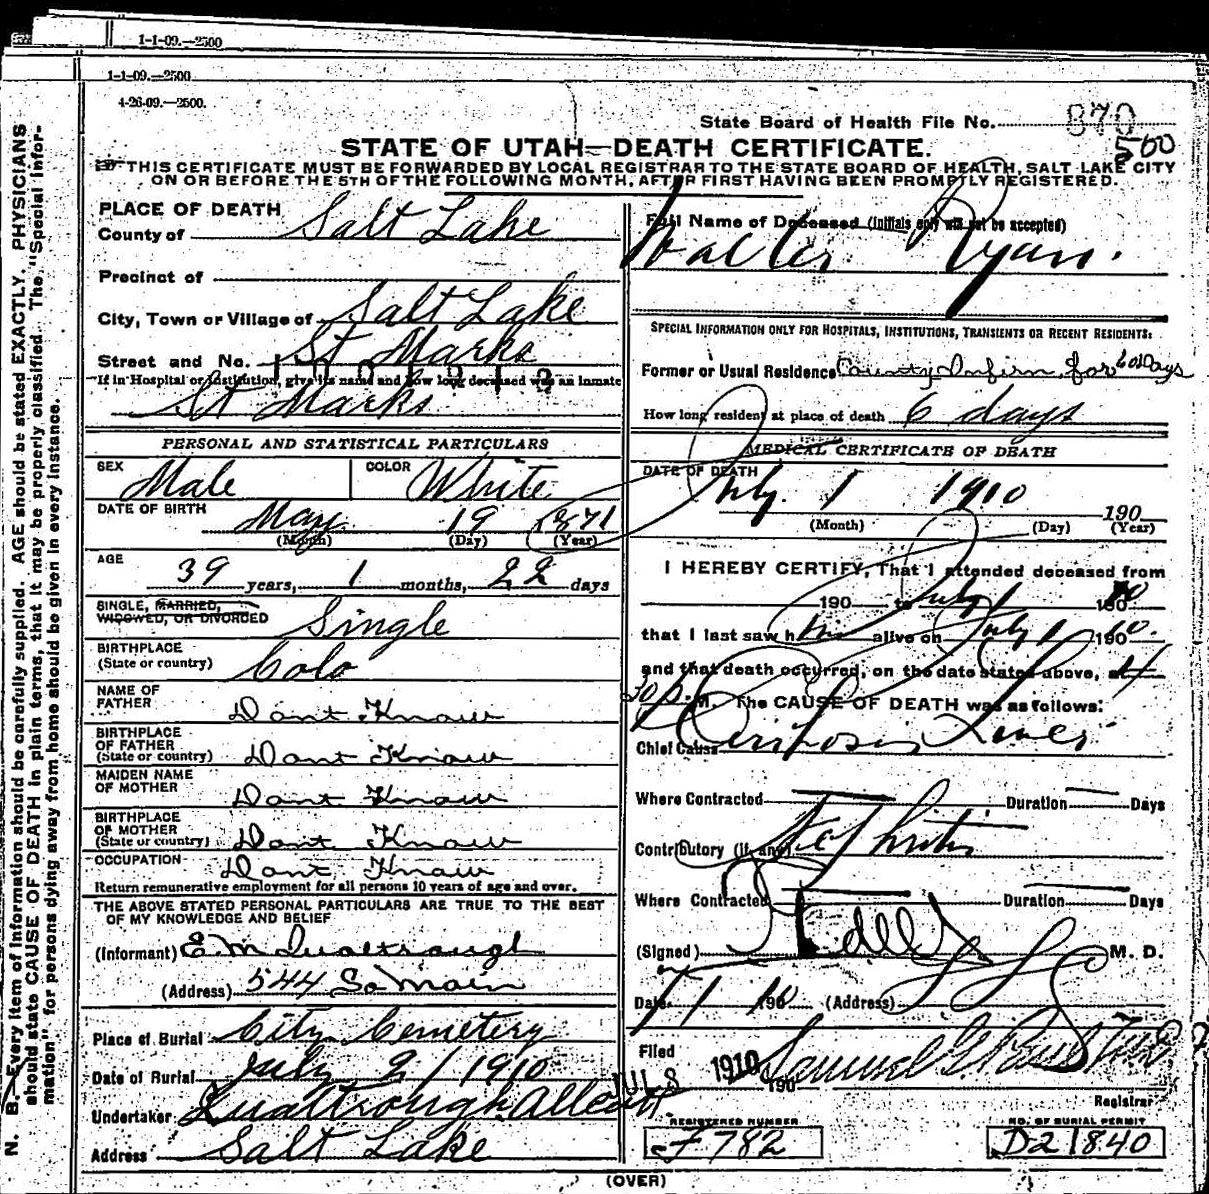 1-1-09.—2500
1-1-09.—2500
4-26-09.—2500.
State Board of Health File No. 870
500
STATE OF UTAH—DEATH CERTIFICATE.
THIS CERTIFICATE MUST BE FORWARDED BY LOCAL REGISTRAR TO THE STATE BOARD OF HEALTH, SALT LAKE CITY
ON OR BEFORE THE 5TH OF THE FOLLOWING MONTH, AFTER FIRST HAVING BEEN PROMPTLY REGISTERED.
PLACE OF DEATH
County of Salt Lake
Precinct of
City, Town or Village of Salt Lake
Street and No. St Marks
If in Hospital or Institution, give its name and how long deceased was an inmate
St Marks
PERSONAL AND STATISTICAL PARTICULARS
SEX Male COLOR White
DATE OF BIRTH May 19 1871
(Month) (Day) (Year)
AGE 39 years, 1 months, 22 days
SINGLE, MARRIED,
WIDOWED, OR DIVORCED Single
BIRTHPLACE
(State or country) Colo
NAME OF
FATHER Dont Know
BIRTHPLACE
OF FATHER
(State or country) Dont Know
MAIDEN NAME
OF MOTHER Dont Know
BIRTHPLACE
OF MOTHER
(State or country) Dont Know
OCCUPATION Dont Know
Return remunerative employment for all persons 10 years of age and over.
THE ABOVE STATED PERSONAL PARTICULARS ARE TRUE TO THE BEST
OF MY KNOWLEDGE AND BELIEF
(Informant) E. M
(Address) 544 So Main
Place of Burial City Cemetery
Date of Burial July 2/1910
Undertaker
Address Salt Lake
Full Name of Deceased (Initials only will not be accepted)
Walter Ryan.
SPECIAL INFORMATION ONLY FOR HOSPITALS, INSTITUTIONS, TRANSIENTS OR RECENT RESIDENTS:
Former or Usual Residence County Infirm. for 60 Days
How long resident at place of death 6 days
MEDICAL CERTIFICATE OF DEATH
DATE OF DEATH
July 1 1910 190
(Month) (Day) (Year)
I HEREBY CERTIFY, That I attended deceased from
190 to July 1 190 10
that I last saw h im alive on July 1 190 10.
and that death occurred, on the date stated above, at 4
30 P. M. The CAUSE OF DEATH was as follows:
Chief Cause Cirrhosis Liver
Where Contracted Duration Days
Contributory (if any) Nephritis
Where Contracted Duration Days
(Signed) M. D.
Date 7/1 190 10 (Address) S L
Filed JUL 8 1910 190 Samuel G.
Registrar
REGISTERED NUMBER
F 782
NO. OF BURIAL PERMIT
D21840
(OVER)
N. B.—Every item of information should be carefully supplied. AGE should be stated EXACTLY. PHYSICIANS
should state CAUSE OF DEATH in plain terms, that it may be properly classified. The "Special Infor-
mation" for persons dying away from home should be given in every instance.